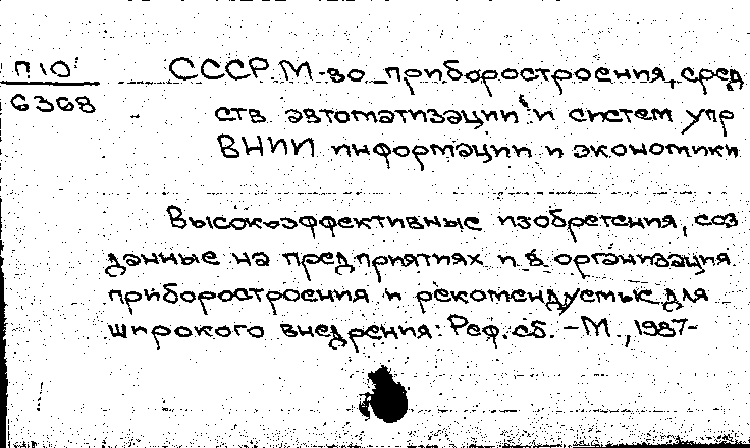 П10
6368
СССР. М-во приборостроения, сред
ств автоматизации и систем упр
ВНИИ информации и экономики
Высокоэффективные изобретения, соз
данные на предприятиях и в организация
приборостроения и рекомендуемые для
широкого внедрения: Реф. сб. - М., 1987-